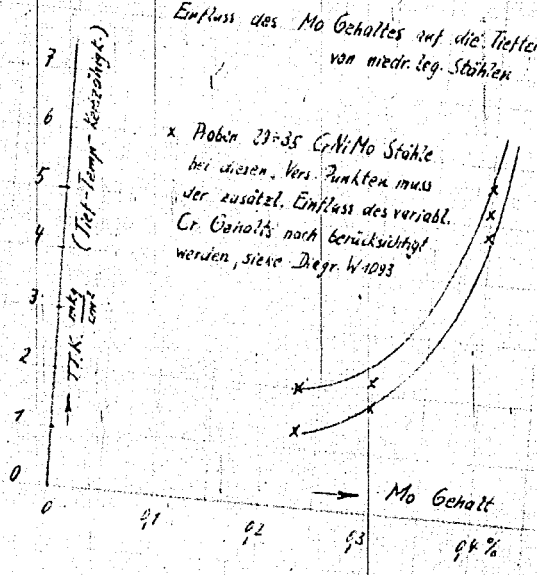 Einfluss des Mo Gehaltes auf die Tieftem
von niedr. leg. Stählen
x Proben 29÷35 CrNiMo Stähle
bei diesen Vers. Punkten muss
der zusätzl. Einfluss des variabl.
Cr Gehalts noch berücksichtigt
werden, siehe Diagr. W1093
→ T.T.K. mkg/cm² (Tief-Temp-Kerbzähigk.)
7
6
5
4
3
2
1
0
→ Mo Gehalt
0 0,1 0,2 0,3 0,4 %